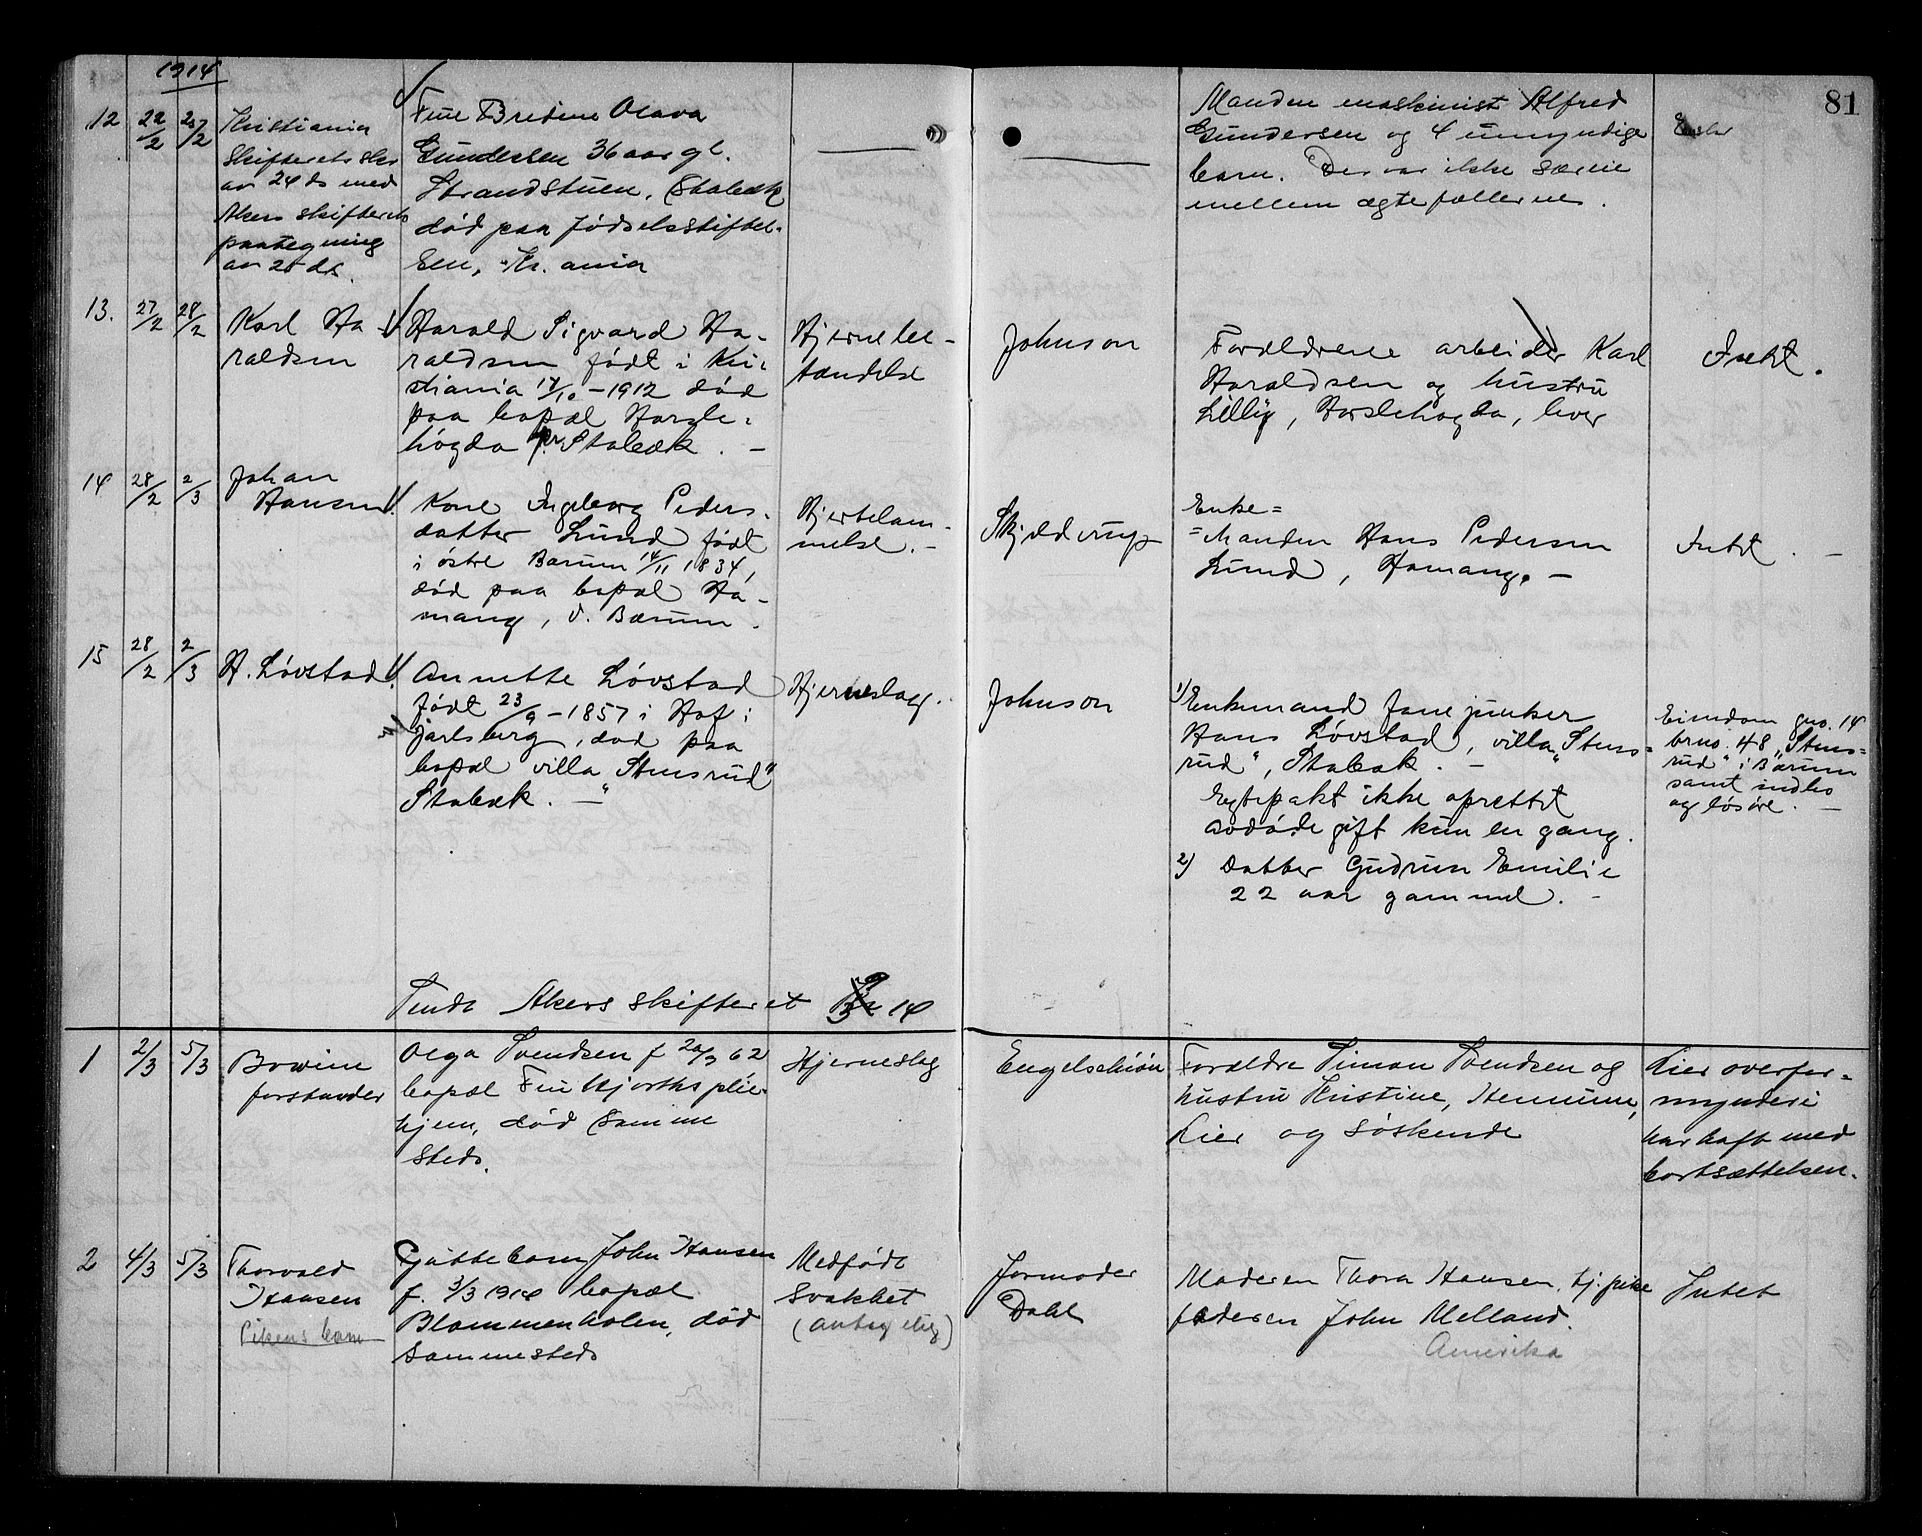 1914
81
12 22/2 25/2 Kristiania
skifterets skr
av 24 ds med
Akers skifterets
paategning
av 25 ds.
Frue Bredine Olava
Gundersen 36 aar gl.
Strandstuen, Stabæk
død paa Fødselsstiftel-
sen, Kr.ania
Manden maskinist Alfred
Gundersen og 4 umyndige
barn. Der var ikke særeie
mellem ægtefællerne.
13. 27/2 28/2 Karl Ha-
raldsen
Harald Sigvard Ha-
raldsen født i Kri-
stiania 17/10 - 1912 død
paa bopæl Harsle-
høgda pr. Stabæk. -
Hjernebe-
tændelse
Johnson
Forældrene arbeider Karl
Haraldsen og hustru
Lilly, Harslehøgda, lever
Intet.
14 28/2 2/3 Johan
Hansen
Kone Ingeborg Peders-
datter Lund født
i østre Bærum 14/11 1834,
død paa bopæl Ha-
mang, V. Bærum.
Hjertelam-
melse. -
Skjelderup
Enke=
=Manden Hans Pedersen
Lund, Hamang. -
Intet. -
15 28/2 2/3 H. Løvstad
Annette Løvstad
født 23/9 - 1857 i Hof i
Jarlsberg, død paa
bopæl villa "Stensrud"
Stabæk. -
Hjerneslag.
Johnson
1) Enkemand fanejunker
Hans Løvstad, villa "Stens-
rud", Stabæk. -
Egtepakt ikke oprettet
avdøde gift kun en gang.
2) Datter Gudrun Emilie
22 aar gammel. -
Eiendom gno. 14
brno. 48 "Stens-
rud" i Bærum
samt indbo
og løsøre. -
Sendt Akers skifteret 3/3 14
1 2/3 5/3
forstander
Olga Svendsen f 20/9 62
bopæl Fru Hjorths plie-
hjem, død samme
steds.
Hjerneslag
Engelschiøn
Forældre Simon Svendsen og
hustru Kristine, Hennum,
Lier og søskende
Lier overfor-
mynderi
har haft med
bortsættelsen.
2 4/3 5/3 Thorvald
Hansen
Pikens barn
Guttebarn John Hansen
f. 3/3 1914 bopæl
Blommenholm, død
sammesteds
Medfødt
svakhet
(antagelig)
Jormoder
Dahl
Moderen Thora Hansen, tj. pike
faderen John Melland.
Amerika
Intet